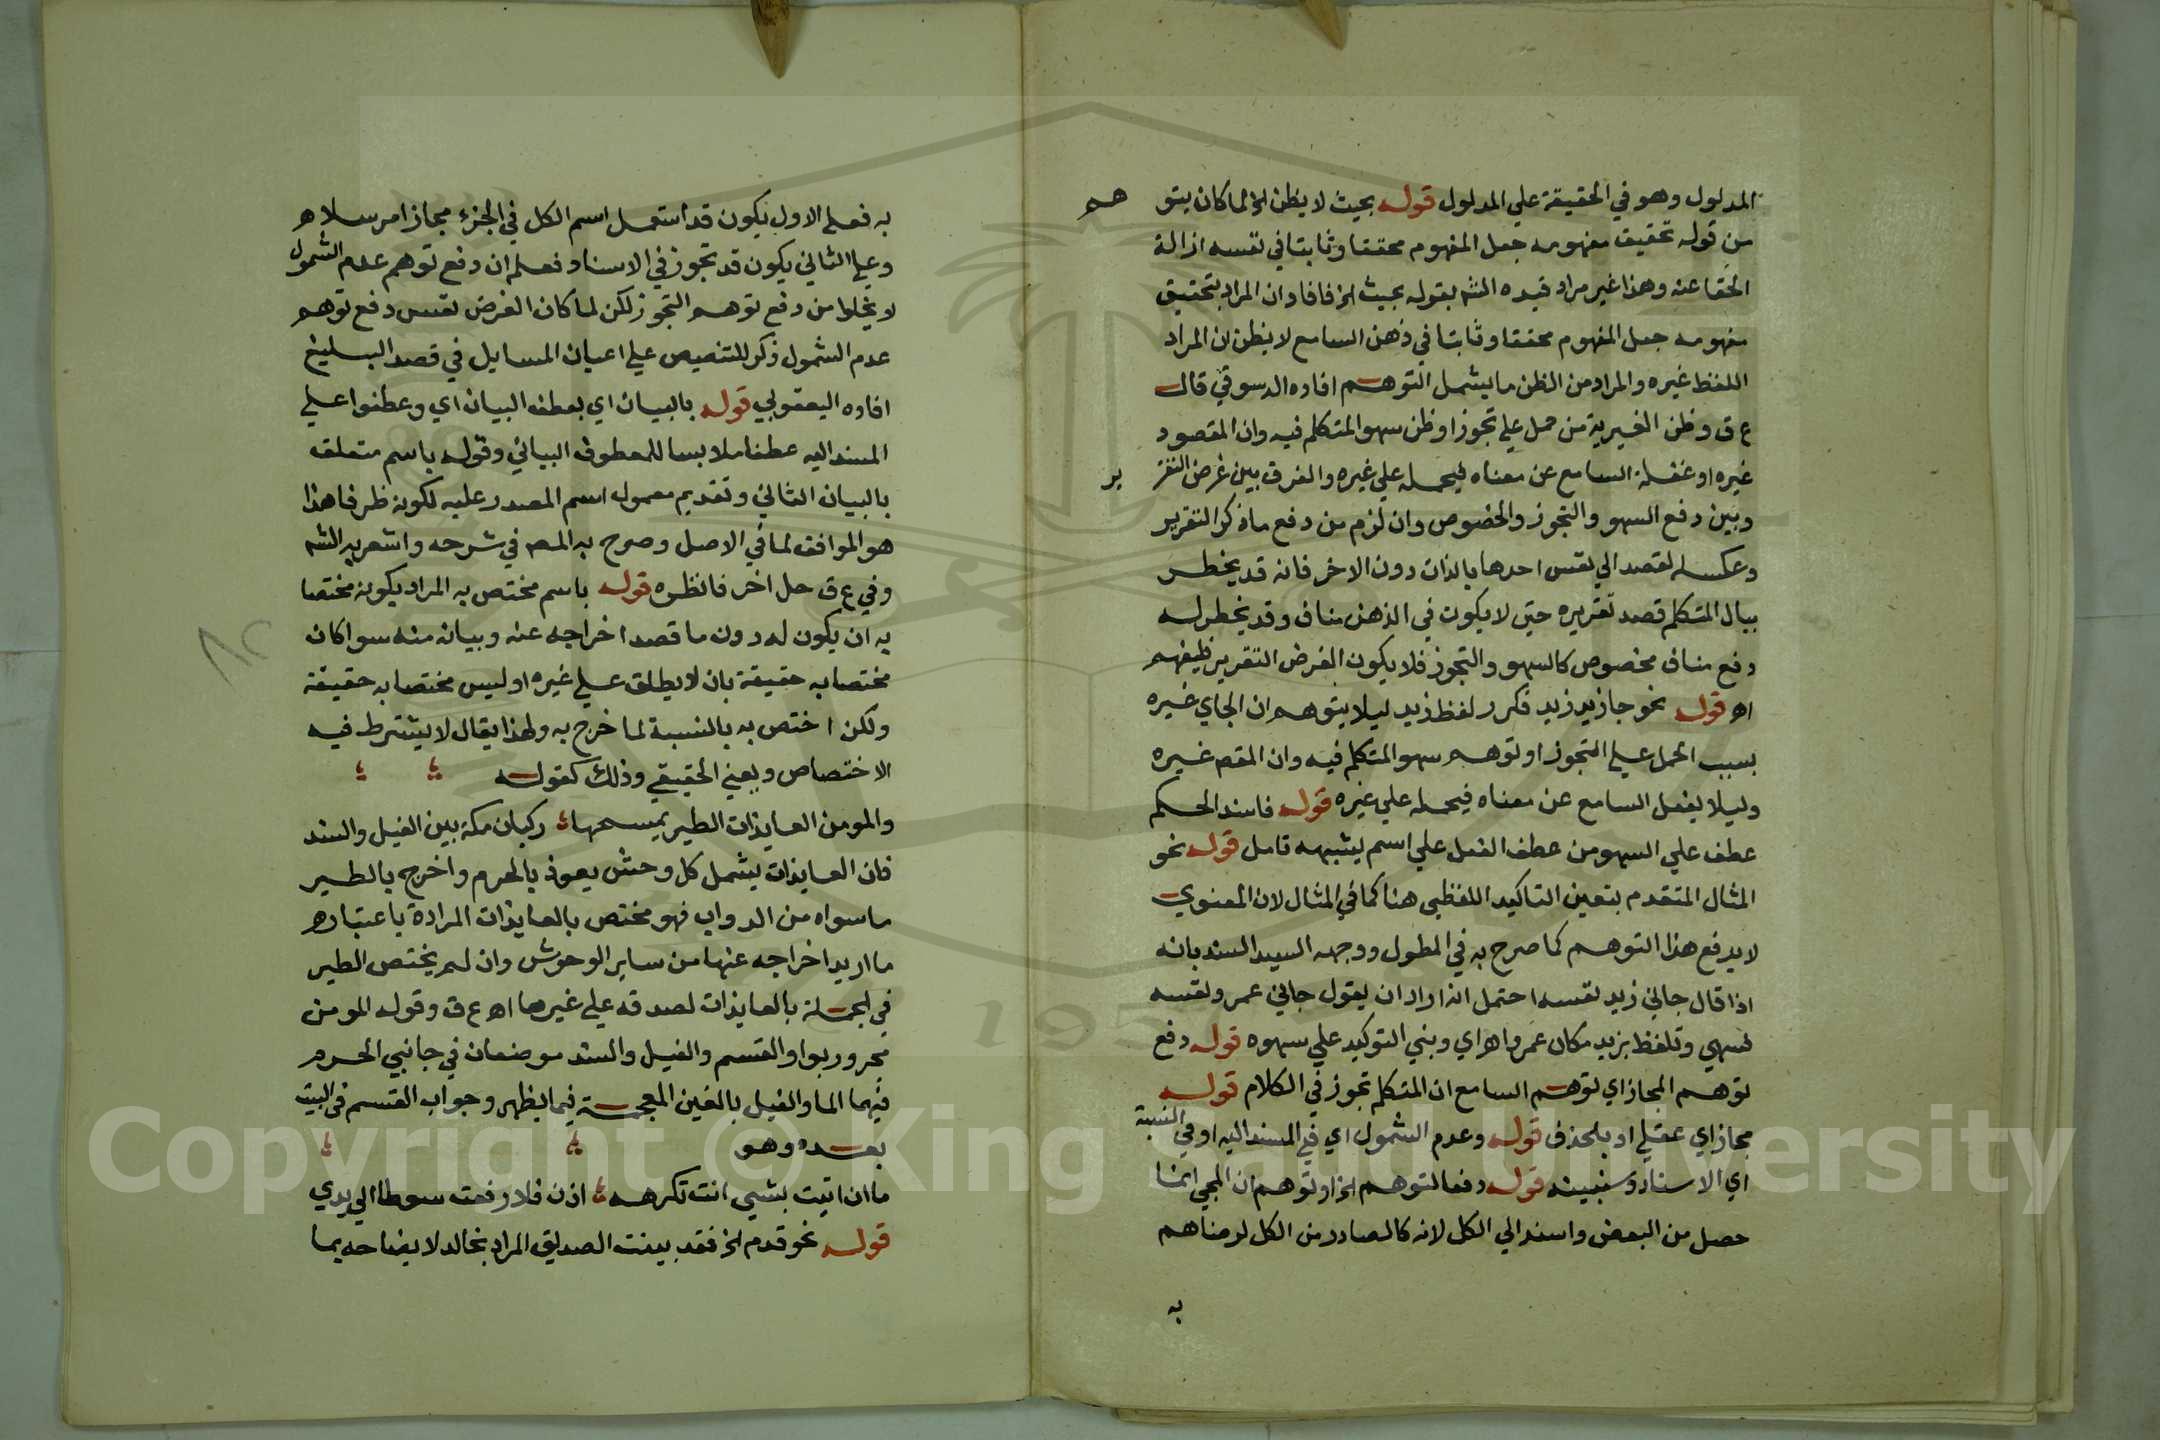 المدلول وهو في الحقيقة علي المدلول قوله بحيث لا يظن الخ لما كان يتو
هم
من قوله تحقيق مفهومه جعل المفهوم محققا وثابتا في نفسه ازالة
الخفا عنه وهذا غير مراد قيده الشه بقوله بحيث الخ فافاد ان المراد بتحقيق
مفهومه جعل المفهوم محققا وثابتا في ذهن السامع لا يظن ان المراد
اللفظ غيره والمراد من الظن ما يشمل التوهم افاده الدسوقي قال
ع ق وظن الغيرية من حمل علي تجوز او ظن سهو المتكلم فيه وان المقصود
غيره او غفلة السامع عن معناه فيحمله علي غيره والفرق بين غرض التقر
ير
وبين دفع السهو والتجوز والخصوص وان لزم من دفع ما ذكر التقرير
وعكسه لقصد الي نفس احدها بالذات دون الاخر فانه قد يخطر
ببال المتكلم قصد تقريره حتي لا يكون في الذهن مناف وقد يخطر له
دفع مناف مخصوص كالسهو والتجوز فلا يكون الغرض التقرير فليفهم
اه قوله نحو جا زيد زيد فكرر لفظ زيد ليلا يتوهم ان الجاي غيره
بسبب الحمل علي التجوز او توهم سهو المتكلم فيه وان المقصه غيره
وليلا يغفل السامع عن معناه فيحمله علي غيره قوله فاسند الحكم
عطف علي السهو من عطف الفعل علي اسم يشبهه تامل قوله نحو
المثال المتقدم بتعين التاكيد اللفظي هنا كما في المثال لان المعنوي
لا يدفع هذا التوهم كما صرح به في المطول ووجهه السيد السند بانه
اذا قال جاني زيد نفسه احتمل انه اراد ان يقول جاني عمرو نفسه
فسهي وتلفظ بزيد مكان عمرو اه اي وبني التوكيد علي سهوه قوله دفع
توهم المجاز اي توهم السامع ان المتكلم تجوز في الكلام قوله
مجاز اي عقلي او بالحذف قوله وعدم الشمول اي في المسند اليه او في النسبة
اي الاسناد قوله دفعا لتوهم الخ او توهم ان المجي انما
حصل من البعض واسند الي الكل لانه كالصادر من الكل لرضاهم
به
به فعلي الاول يكون قد استعمل اسم الكل في الجزء مجازا مرسلا ه
وعلي الثاني يكون قد تجوز في الاسناد فعلم ان دفع توهم عدم الشمول
لا يخلوا من دفع توهم التجوز لكن لما كان الغرض نفس دفع توهم
عدم الشمول ذكر للتنصيص علي اعيان المسايل في قصد البليغ
افاده اليعقوبي قوله بالبيان اي بعطف البيان اي وعطفوا علي
المسند اليه عطفا ملابسا للمعطوف البياني وقوله باسم متعلق
بالبيان الثاني وتقديم معمول اسم المصدر عليه لكونه ظرفا هذا
هو الموافق لما في الاصل وصرح به المصه في شرحه واشعر به الشه
وفي ع ق حل اخر فانظره قوله باسم مختص به المراد يكونه مختصا
به ان يكون له دون ما قصد اخراجه عنه وبيانه منه سوا كان
مختصا به حقيقة بان لا يطلق علي غيره او ليس مختصا به حقيقة
ولكن اختص به بالنسبة لما خرج به ولهذا يقال لا يشترط فيه
الاختصاص ويعني الحقيقي وذلك كقوله
والمومن العايذات الطير يمسحها ركبان مكة بين الغيل والسند
فان العايذات يشمل كل وحش يعوذ بالحرم واخرج بالطير
ما سواه من الدواب فهو مختص بالعايذات المرادة باعتباره
ما اريد اخراجه عنها من ساير الوحوش وان لم يختص الطير
في الجملة بالعايذات لصدقه علي غيرها اه ع ق وقوله المومن
مجرور بواو القسم والغيل والسند موضعان في جانبي الحرم
فيهما الما والغيل بالغين المعجمة فيما يظهر وجواب القسم في البيت
بعده وهو
ما ان اتيت بشيي انت تكرهه اذن فلا رفعت سوطا الي يدي
قوله نحو قدم الخ فقد بينت الصديق المراد بخالد لايضاحه بما
٨٢
Copyright © King Saud University
195